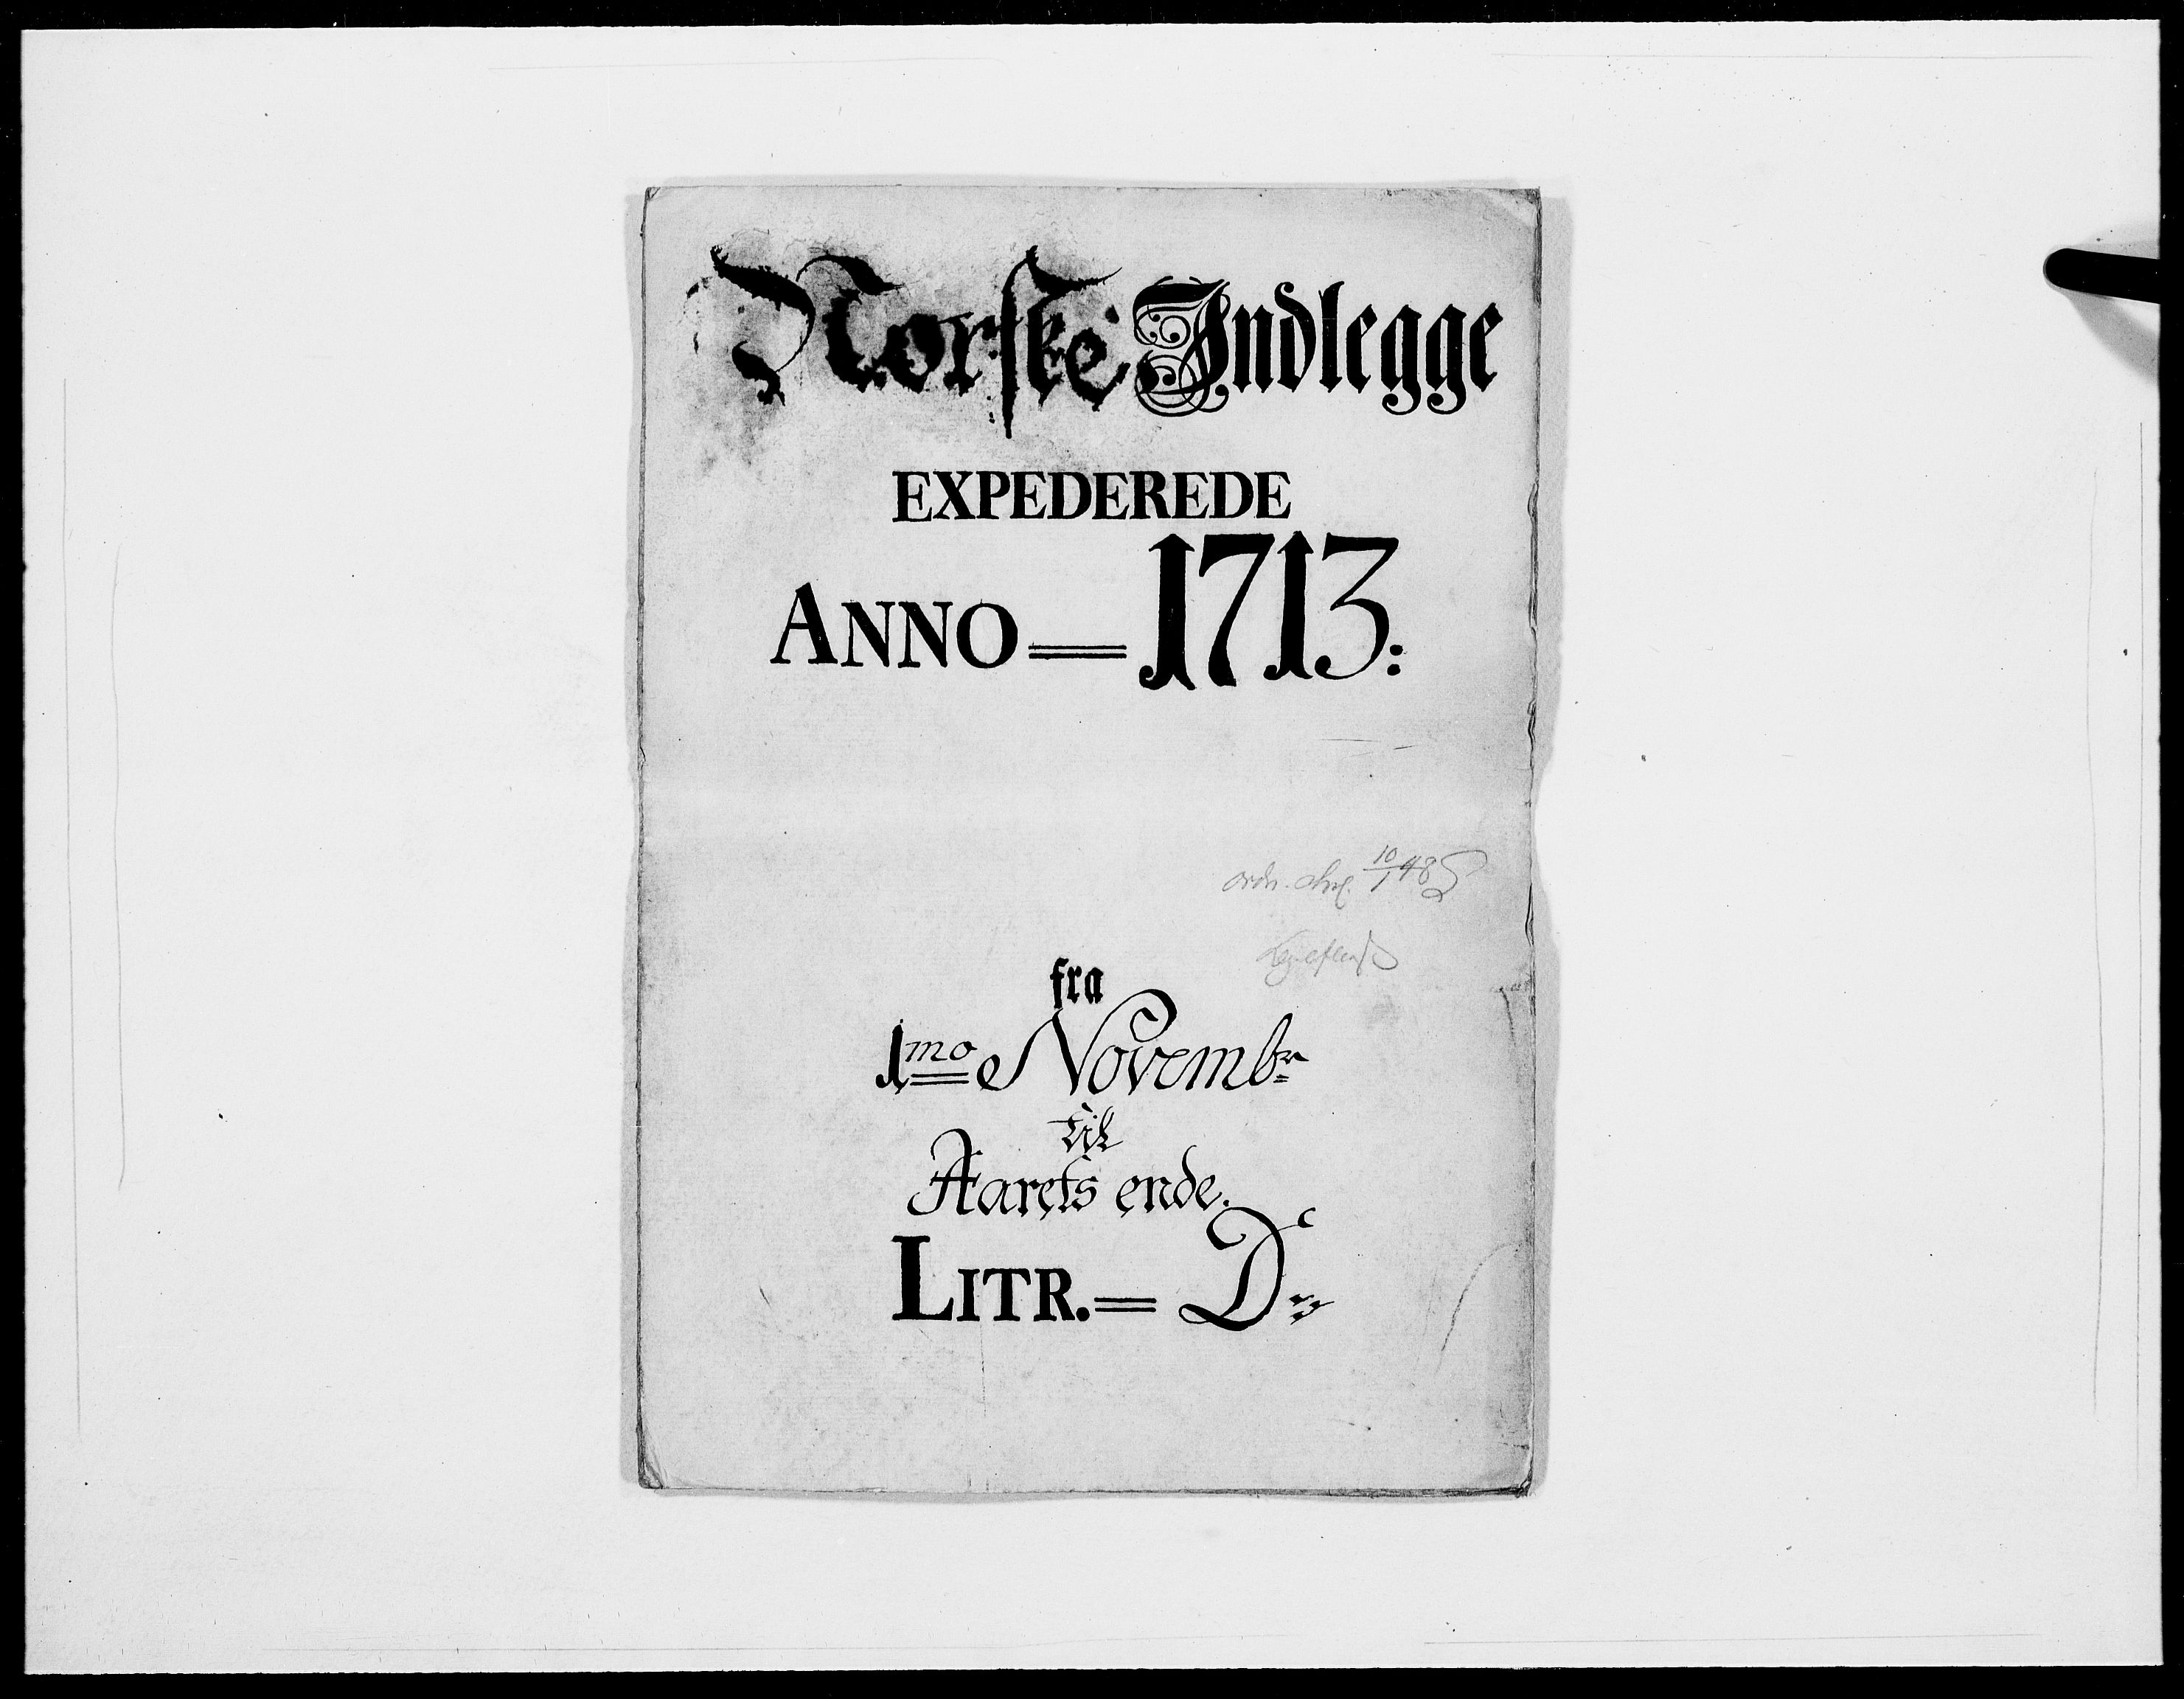 Norske Indlegge
EXPEDEREDE
ANNO = 1713:
ordn. 10/1 48
fra
1mo Novembr
til
Aarets ende.
LITR. = D